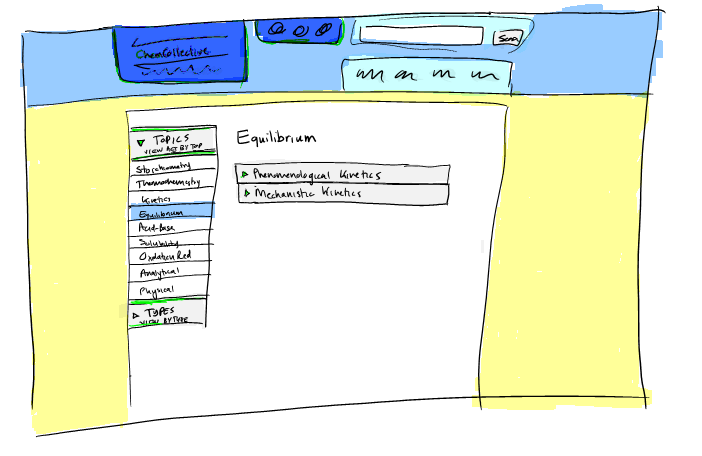 ChemCollective
Send
TOPICS
VIEW ACT BY TOP
Stoichiometry
Thermochemistry
Kinetics
Equilibrium
Acid-Base
Solubility
Oxidation Red
Analytical
Physical
TYPES
VIEW BY TYPE
Equilibrium
Phenomenological Kinetics
Mechanistic Kinetics